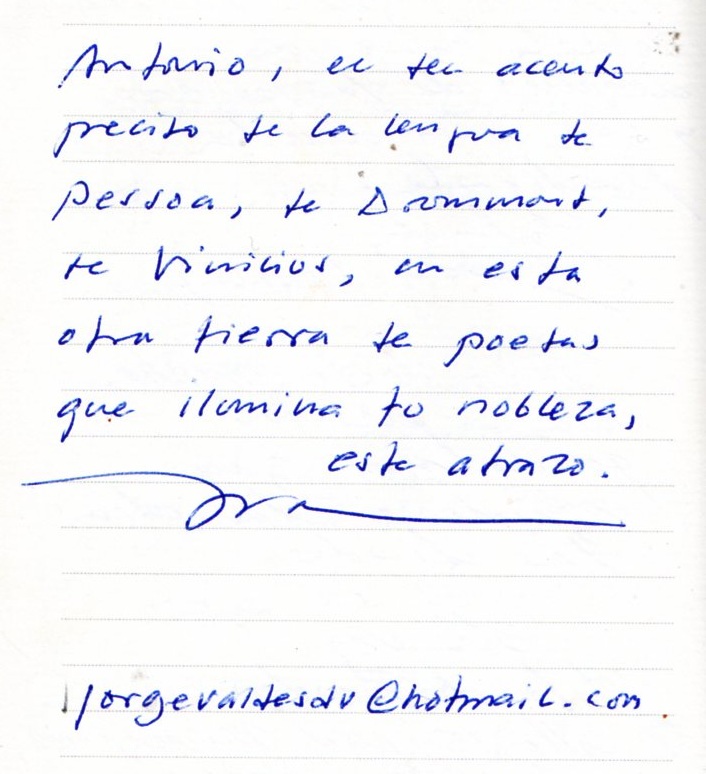 Antonio, en ten acento
preciso de la lengua de
Pessoa, de Drommont,
de Vinicius, en esta
otra tierra de poetas
que ilumina tu nobleza,
este atrazo.
jorgevaldesdv@hotmail.com